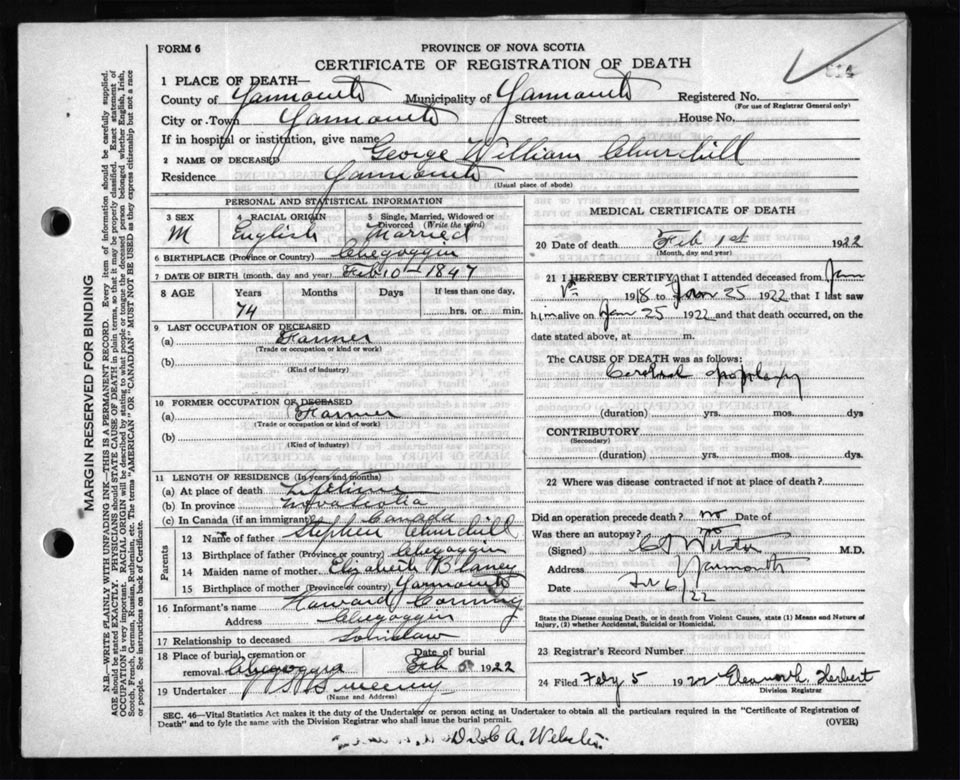 FORM 6
PROVINCE OF NOVA SCOTIA
CERTIFICATE OF REGISTRATION OF DEATH
1 PLACE OF DEATH—
County of Yarmouth Municipality of Yarmouth Registered No.
(For use of Registrar General only)
City or Town Yarmouth Street House No.
If in hospital or institution, give name
2 NAME OF DECEASED George William Churchill
Residence Yarmouth
(Usual place of abode)
PERSONAL AND STATISTICAL INFORMATION
3 SEX 4 RACIAL ORIGIN 5 Single, Married, Widowed or Divorced (Write the word)
M English Married
6 BIRTHPLACE (Province or Country) Chegoggin
7 DATE OF BIRTH (month, day and year) Feb 10 - 1847
8 AGE Years Months Days If less than one day,
74 hrs. or min.
9 LAST OCCUPATION OF DECEASED
(a) Farmer
(Trade or occupation or kind or work)
(b)
(Kind of industry)
10 FORMER OCCUPATION OF DECEASED
(a) Farmer
(Trade or occupation or kind of work)
(b)
(Kind of industry)
11 LENGTH OF RESIDENCE (In years and months)
(a) At place of death Lifetime
(b) In province Nova Scotia
(c) In Canada (if an immigrant) Canada
Parents
12 Name of father Stephen Churchill
13 Birthplace of father (Province or country) Chegoggin
14 Maiden name of mother Elizabeth Blaney
15 Birthplace of mother (Province or country) Yarmouth
16 Informant's name Howard Corning
Address Chegoggin
17 Relationship to deceased Soninlaw
18 Place of burial, cremation or removal Date of burial
Feb 5 1922
19 Undertaker Sweeney
(Name and Address)
MEDICAL CERTIFICATE OF DEATH
20 Date of death Feb 1st 1922
(Month, day and year)
21 I HEREBY CERTIFY that I attended deceased from Jan
1918 to Jan 25 1922 that I last saw
him alive on Jan 25 1922 and that death occurred, on the
date stated above, at m.
The CAUSE OF DEATH was as follows:
Cerebral Apoplexy
(duration) yrs. mos. dys
CONTRIBUTORY
(Secondary)
(duration) yrs. mos. dys.
22 Where was disease contracted if not at place of death?
Did an operation precede death? no Date of
Was there an autopsy? no
(Signed) Webster M.D.
Address Yarmouth
Date Feb 6/22
State the Disease causing Death, or in death from Violent Causes, state (1) Means and Nature of Injury, (2) whether Accidental, Suicidal or Homicidal.
23 Registrar's Record Number
24 Filed Feby 5 1922 Eleanor L. Herbert
Division Registrar
SEC. 46—Vital Statistics Act makes it the duty of the Undertaker or person acting as Undertaker to obtain all the particulars required in the "Certificate of Registration of
Death" and to fyle the same with the Division Registrar who shall issue the burial permit. (OVER)
A. Webster
MARGIN RESERVED FOR BINDING
N.B.—WRITE PLAINLY WITH UNFADING INK—THIS IS A PERMANENT RECORD. Every item of information should be carefully supplied.
AGE should be stated EXACTLY. PHYSICIANS should STATE CAUSE OF DEATH in plain terms, so that it may be properly classified. Exact statement of
OCCUPATION is very important. RACIAL ORIGIN will be described by stating to what people or tongue the deceased person belonged whether English, Irish,
Scotch, French, German, Russian, Ruthenian, etc. The terms "AMERICAN" OR "CANADIAN" MUST NOT BE USED as they express citizenship but not a race
or people. See instructions on back of Certificate.